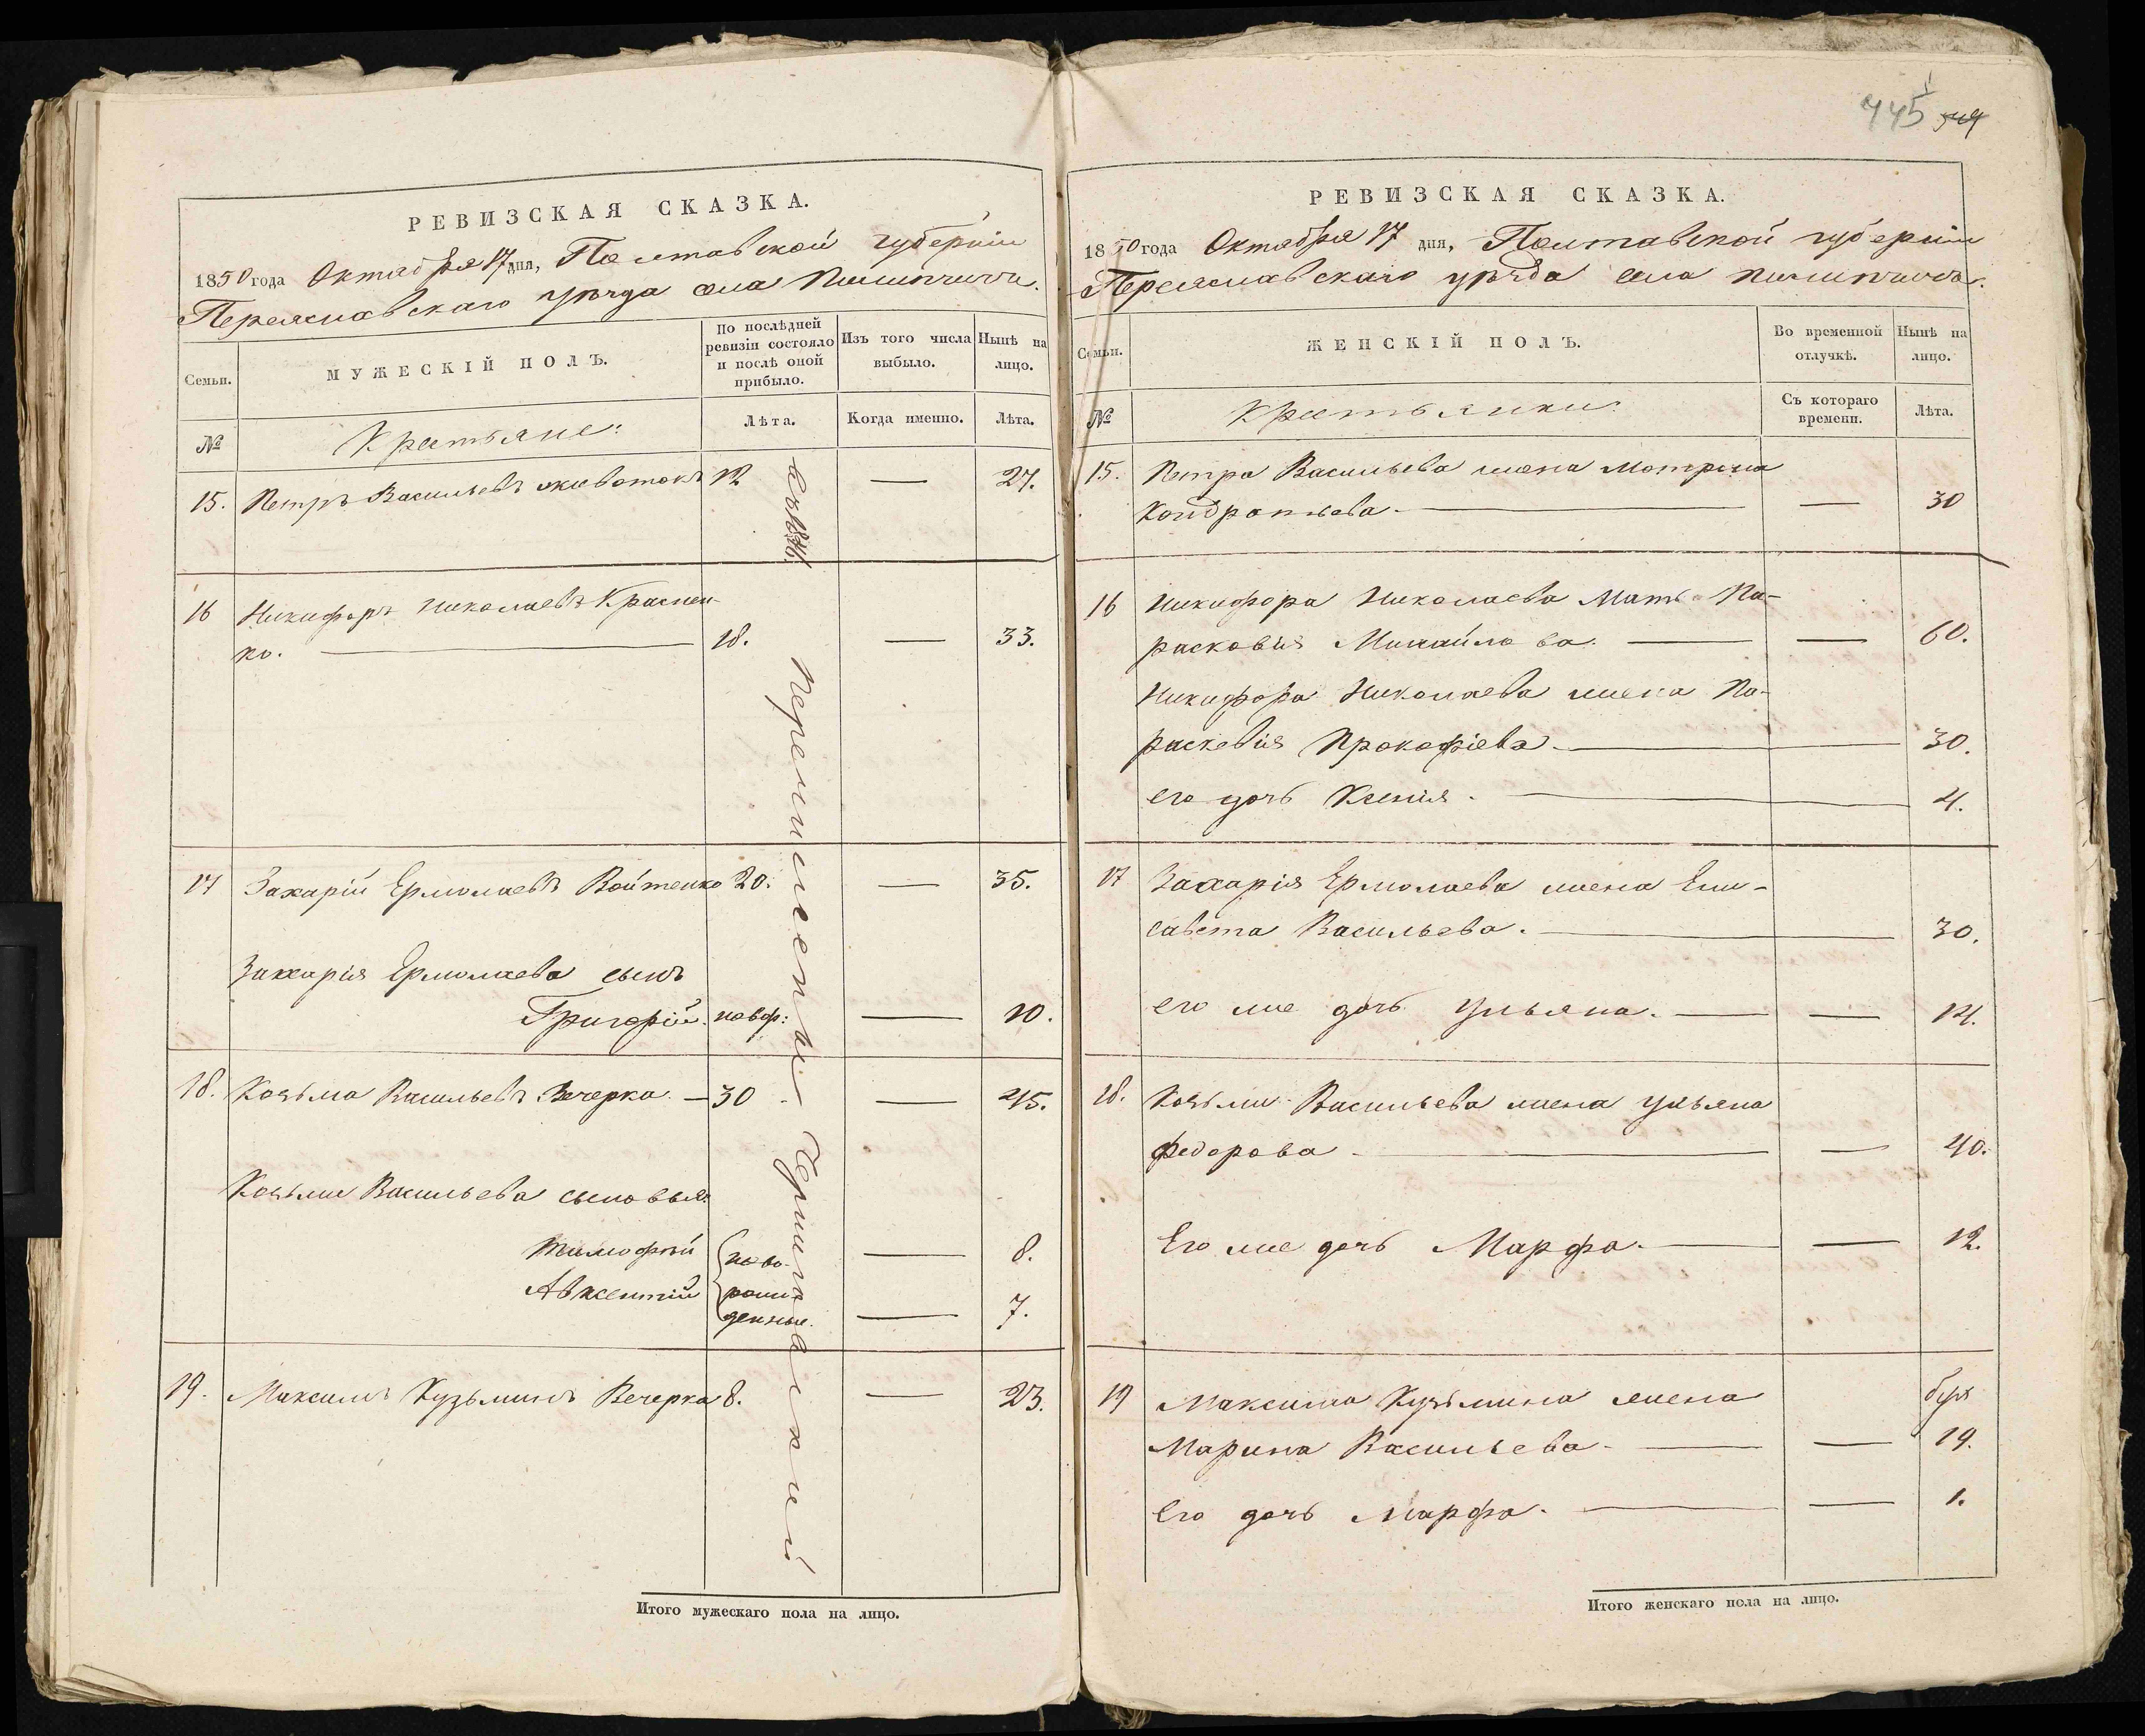 445 549
РЕВИЗСКАЯ СКАЗКА.
1850 года Октября 17 дня, Полтавской губерніи
Переяславскаго уѣзда села
Семьи.
МУЖЕСКІЙ ПОЛЪ.
По послѣдней ревизіи состояло и послѣ оной прибыло.
Изъ того числа выбыло.
Нынѣ на лицо.
№
Крестьяне:
Лѣта.
Когда именно.
Лѣта.
15. Петръ Васильевъ Животокъ 12 — 27.
16 Никифоръ Николаевъ Краснен-
ко. — 18. — 33.
17 Захарій Ермолаевъ Войтенко 20. — 35.
Захарія Ермолаева сынъ
Григорій. новор: — 10.
18. Козьма Васильевъ Вечерка. — 30 — 45.
Козьмы Васильева сыновья:
Тимофѣй ново- — 8.
Авксентій рож-
денные. — 7.
19. Максимъ Кузьминъ Вечерка 8. — 23.
Итого мужескаго пола на лицо.
РЕВИЗСКАЯ СКАЗКА.
1850 года Октября 17 дня, Полтавской губерніи
Переяславскаго уѣзда села
Семьи.
ЖЕНСКІЙ ПОЛЪ.
Во временной отлучкѣ.
Нынѣ на лицо.
№
Крестьянки:
Съ котораго времени.
Лѣта.
15. Петра Васильева жена Мотрона
Кондратьева. — — 30
16 Никифора Николаева Мать Па-
расковія Михайлова. — — 60.
Никифора Николаева жена Па-
раскевія Прокофіева — 30.
его дочь Ксенія. — 4.
17 Захарія Ермолаева жена Ели-
савета Васильева. — 30.
его же дочь Ульяна. — — 14.
18. Козьмы Васильева жена Ульяна
Федорова — — 40.
Его же дочь Марфа. — — 12.
19 Максима Кузьмина жена
Марина Васильева — — 19.
его дочь Марфа. — — 1.
Итого женскаго пола на лицо.